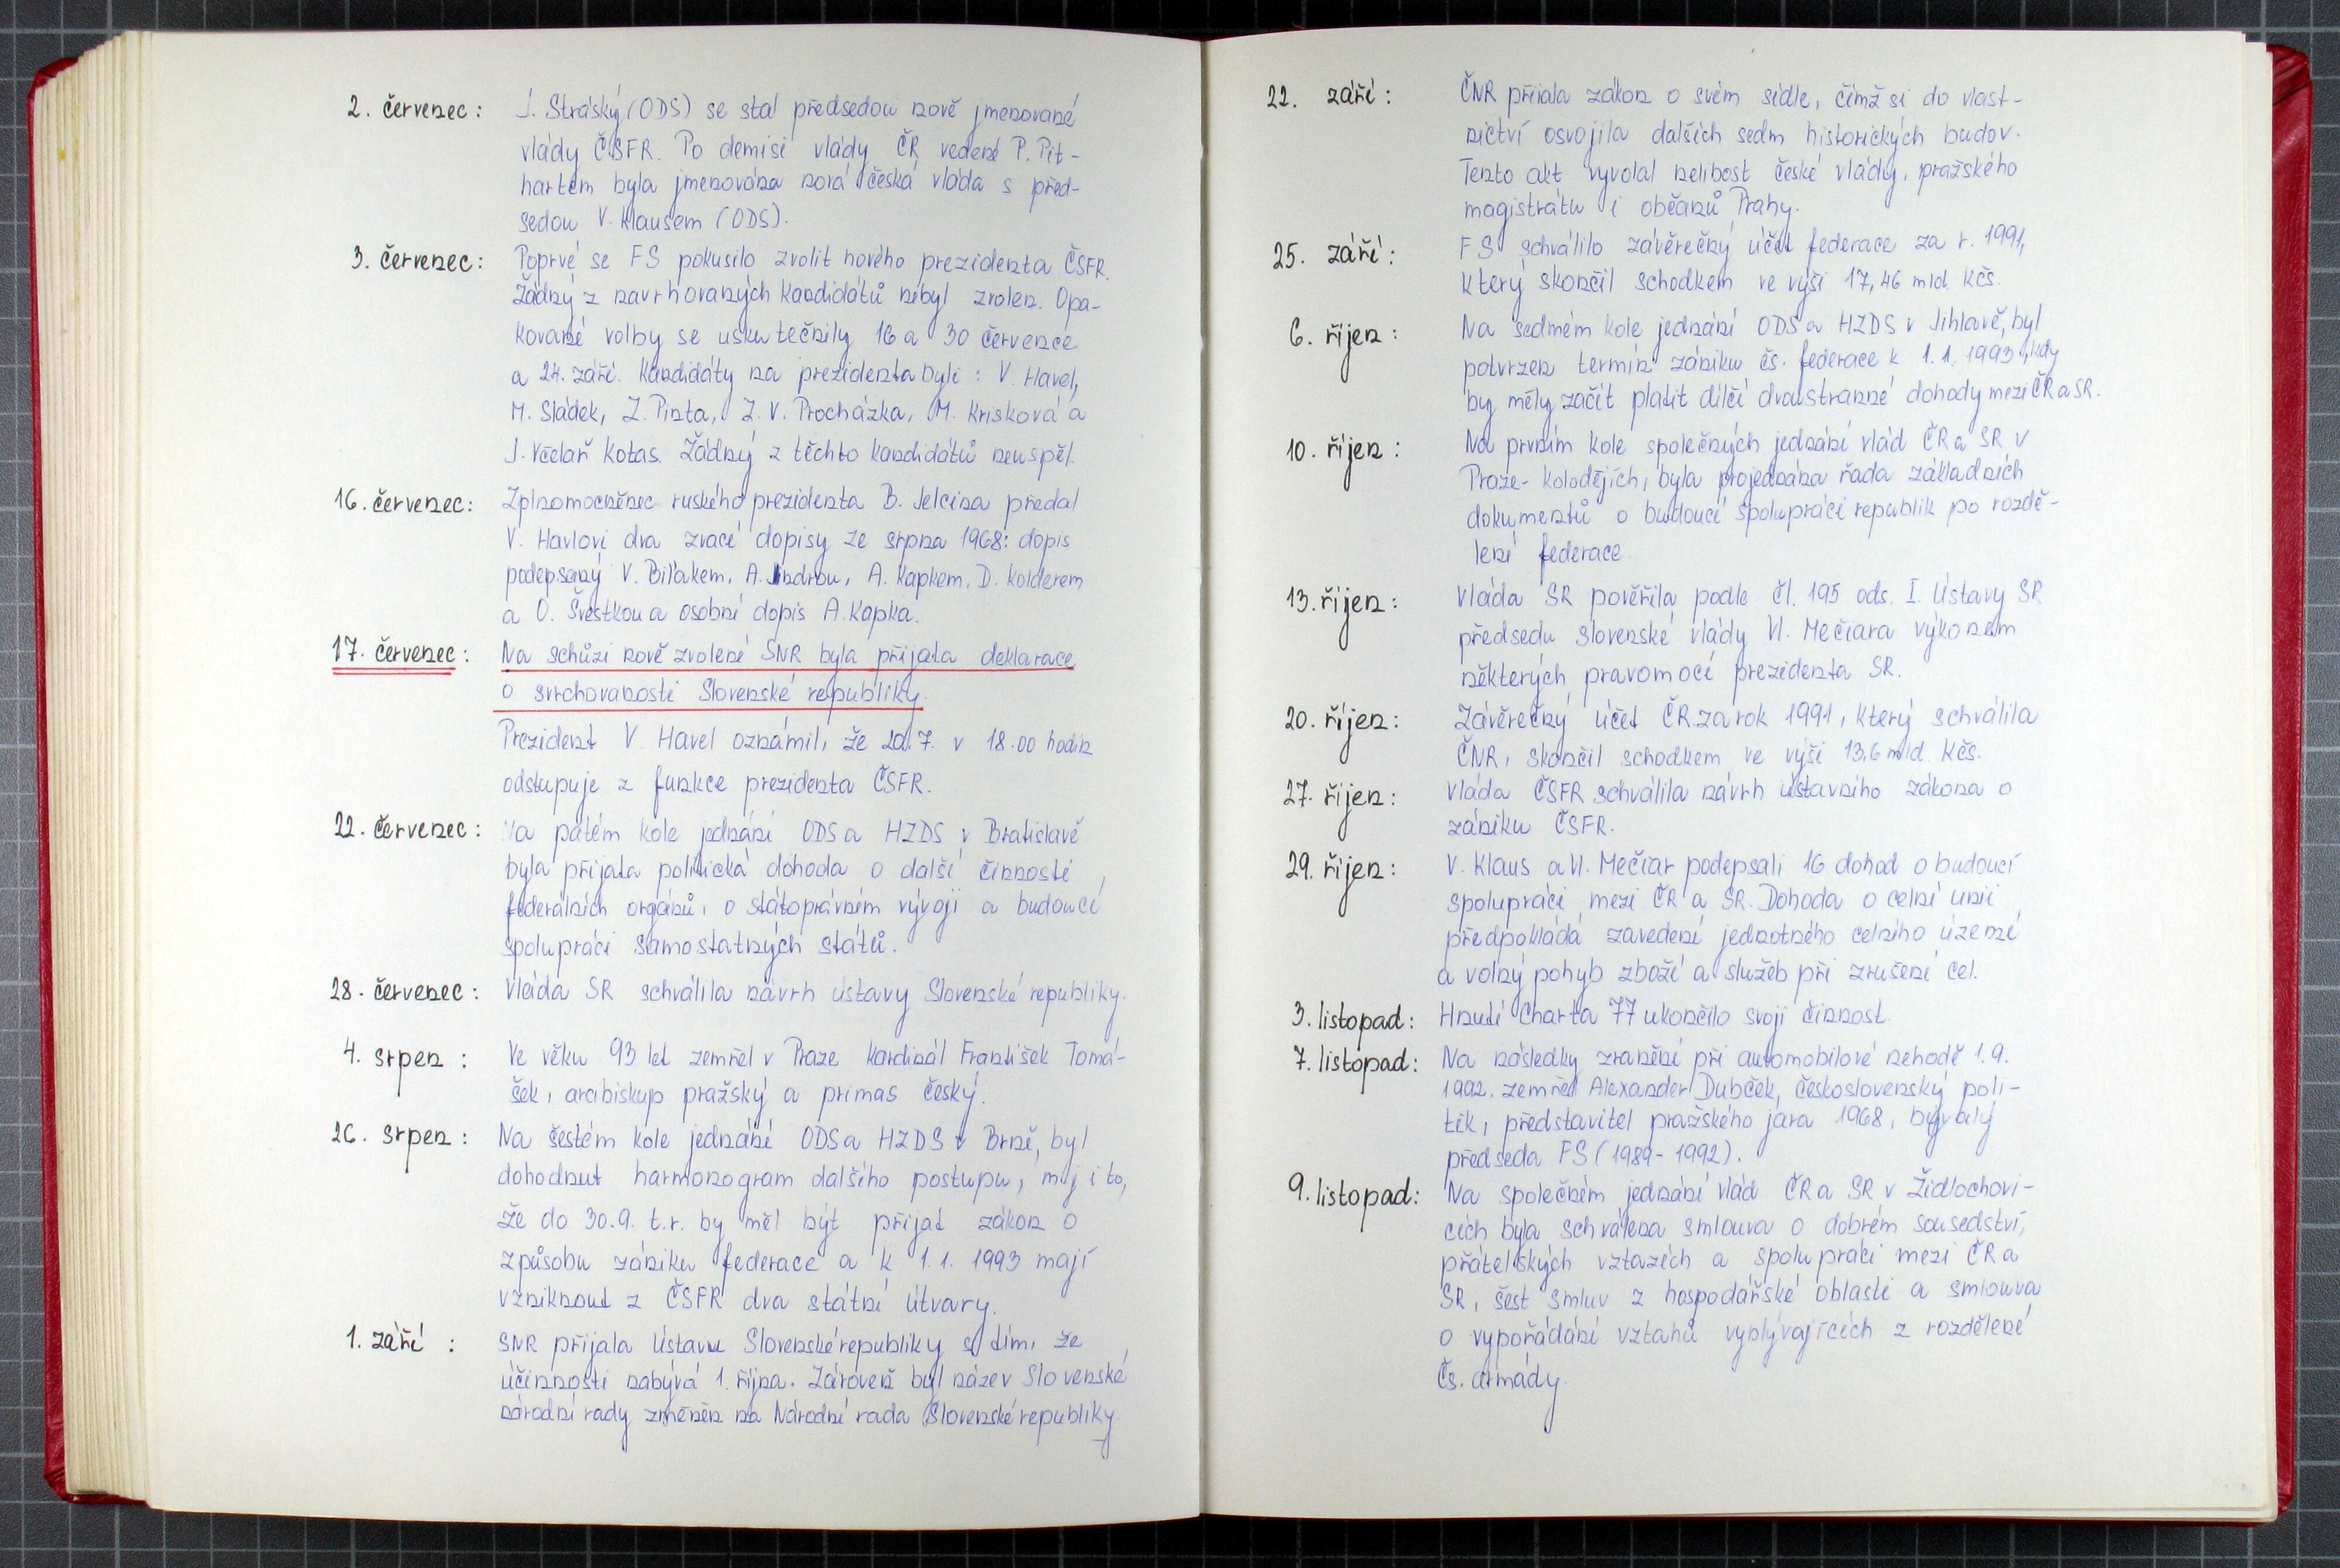 2. červenec: J. Stráský (ODS) se stal předsedou nově jmenované
vlády ČSFR. Po demisi vlády ČR vedené P. Pit-
hartem byla jmenována nová česká vláda s před-
sedou V. Klausem (ODS).
3. červenec: Poprvé se FS pokusilo zvolit nového prezidenta ČSFR.
Žádný z navrhovaných kandidátů nebyl zvolen. Opa-
kované volby se uskutečnily 16 a 30 července
a 24. září. Kandidáty na prezidenta byli: V. Havel,
M. Sládek, Z. Pinta, J. V. Procházka, M. Krisková a
J. Včelař Kotas. Žádný z těchto kandidátů neuspěl.
16. červenec: Zplnomocněnec ruského prezidenta B. Jelcina předal
V. Havlovi dva zvací dopisy ze srpna 1968: dopis
podepsaný V. Bilakem, A. Indrou, A. Kapkem, D. Kolderem
a O. Švestkou a osobní dopis A. Kapka.
17. červenec: Na schůzi nově zvolené SNR byla přijata deklarace
o svrchovanosti Slovenské republiky.
Prezident V. Havel oznámil, že 20. 7. v 18.00 hodin
odstupuje z funkce prezidenta ČSFR.
22. červenec: Na pátém kole jednání ODS a HZDS v Bratislavě
byla přijata politická dohoda o další činnosti
federálních orgánů, o státoprávním vývoji a budoucí
spolupráci samostatných států.
28. červenec: Vláda SR schválila návrh ústavy Slovenské republiky.
4. srpen: Ve věku 93 let zemřel v Praze kardinál František Tomá-
šek, arcibiskup pražský a primas český.
26. srpen: Na šestém kole jednání ODS a HZDS v Brně, byl
dohodnut harmonogram dalšího postupu, mj i to,
že do 30.9. t.r. by měl být přijat zákon o
způsobu zániku federace a k 1.1. 1993 mají
vzniknout z ČSFR dva státní útvary.
1. září: SNR přijala Ústavu Slovenské republiky s tím, že
účinnosti nabývá 1. října. Zároveň byl název Slovenské
národní rady změněn na Národní rada Slovenské republiky.
22. září: ČNR přijala zákon o svém sídle, čímž si do vlast-
nictví osvojila dalších sedm historických budov.
Tento akt vyvolal nelibost české vlády, pražského
magistrátu i občanů Prahy.
25. září: FS schválilo závěrečný účet federace za r. 1991,
který skončil schodkem ve výši 17,46 mld. Kčs.
6. říjen: Na sedmém kole jednání ODS a HZDS v Jihlavě, byl
potvrzen termín zániku čs. federace k 1.1. 1993, kdy
by měly začít platit dílčí dvoustranné dohody mezi ČR a SR.
10. říjen: Na prvním kole společných jednání vlád ČR a SR v
Praze- Kolodějích, byla projednána řada základních
dokumentů o budoucí spolupráci republik po rozdě-
lení federace.
13. říjen: Vláda SR pověřila podle čl. 195 ods. I. Ústavy SR
předsedu slovenské vlády Vl. Mečiara výkonem
některých pravomocí prezidenta SR.
20. říjen: Závěrečný účet ČR za rok 1991, který schválila
ČNR, skončil schodkem ve výši 13,6 mld. Kčs.
27. říjen: Vláda ČSFR schválila návrh ústavního zákona o
zániku ČSFR.
29. říjen: V. Klaus a Vl. Mečiar podepsali 16 dohod o budoucí
spolupráci mezi ČR a SR. Dohoda o celní unii
předpokládá zavedení jednotného celního území
a volný pohyb zboží a služeb při zrušení cel.
3. listopad: Hnutí Charta 77 ukončilo svoji činnost.
7. listopad: Na následky zranění při automobilové nehodě 1.9.
1992. zemřel Alexander Dubček, československý poli-
tik, představitel pražského jara 1968, bývalý
předseda FS (1989-1992).
9. listopad: Na společném jednání vlád ČR a SR v Židlochovi-
cích byla schválena smlouva o dobrém sousedství,
přátelských vztazích a spolupráci mezi ČR a
SR, šest smluv z hospodářské oblasti a smlouva
o vypořádání vztahů vyplývajících z rozdělení
Čs. armády.